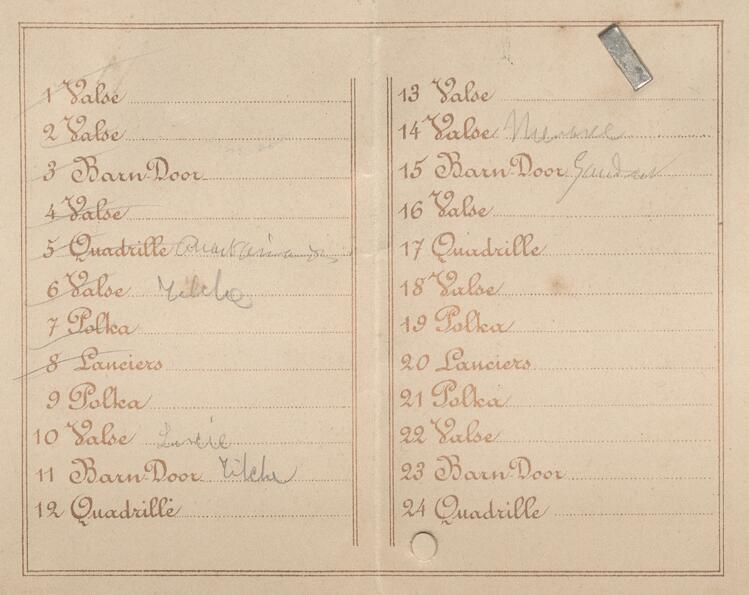 1 Valse
2 Valse
3 Barn-Door
4 Valse
5 Quadrille
6 Valse
7 Polka
8 Lanciers
9 Polka
10 Valse Lucie
11 Barn-Door
12 Quadrille
13 Valse
14 Valse
15 Barn-Door
16 Valse
17 Quadrille
18 Valse
19 Polka
20 Lanciers
21 Polka
22 Valse
23 Barn-Door
24 Quadrille